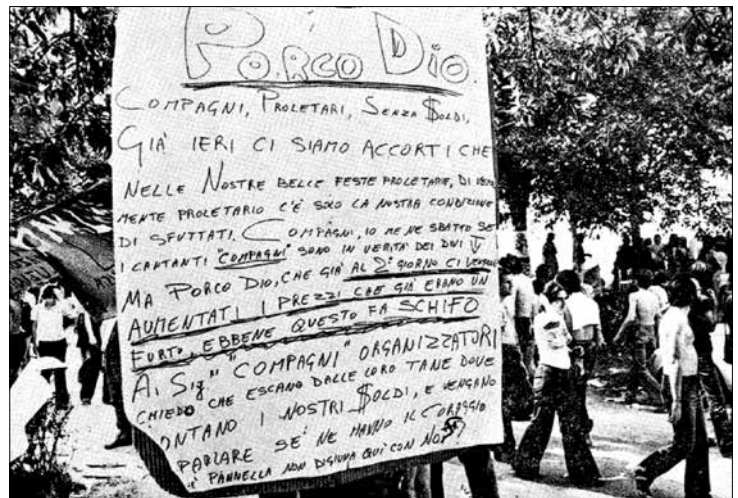 PORCO DIO.
COMPAGNI, PROLETARI, SENZA $OLDI,
GIÀ IERI CI SIAMO ACCORTI CHE
NELLE NOSTRE BELLE FESTE PROLETARIE, DI VERA
MENTE PROLETARIO C'È SOLO LA NOSTRA CONDIZIONE
DI SFUTTATI. COMPAGNI, IO ME NE SBATTO SE
I CANTANTI "COMPAGNI" SONO IN VERITÀ DEI DIVI
MA PORCO DIO, CHE GIÀ AL 2° GIORNO CI VENGANO
AUMENTATI I PREZZI CHE GIÀ ERANO UN
FURTO, EBBENE QUESTO FA SCHIFO
AI SIG.ri "COMPAGNI" ORGANIZZATORI
CHIEDO CHE ESCANO DALLE LORO TANE DOVE
CONTANO I NOSTRI $OLDI, E VENGANO
PARLARE SE NE HANNO IL CORAGGIO
PANNELLA NON DIGIUNA QUÌ CON NOI